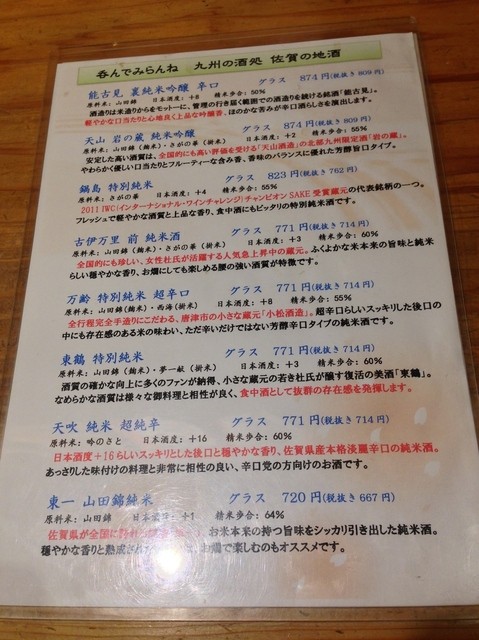 呑んでみらんね 九州の酒処 佐賀の地酒
能古見 裏純米吟醸 辛口 グラス 874円(税抜き 809円)
原料米:山田錦 日本酒度:+8 精米歩合:50%
酒造りは米造りからをモットーに、管理の行き届く範囲での酒造りを続ける銘酒「能古見」。
軽やかな口当たりと心地良く上品な吟醸香、ほのかな苦みが辛口酒らしさを演出します。
天山 岩の蔵 純米吟醸 グラス 874円(税抜き 809円)
原料米:山田錦(麹米)・さがの華(掛米) 日本酒度:+2 精米歩合:55%
安定した高い酒質は、全国的にも高い評価を受ける「天山酒造」の北部九州限定酒「岩の蔵」。
やわらかく優しい口当たりとフルーティーな含み香、香味のバランスに優れた芳醇旨口タイプ。
鍋島 特別純米 グラス 823円(税抜き 762円)
原料米:さがの華 日本酒度:+4 精米歩合:55%
2011 IWC(インターナショナル・ワインチャレンジ)チャンピオン SAKE 受賞蔵元の代表銘柄の一つ。
フレッシュで軽やかな酒質と上品な香り、食中酒にもピッタリの特別純米酒です。
古伊万里 前 純米酒 グラス 771円(税抜き 714円)
原料米:山田錦(麹米)・さがの華(掛米) 日本酒度:+3 精米歩合:60%
全国的にも珍しい、女性杜氏が活躍する人気急上昇中の蔵元。ふくよかな米本来の旨味と純米
らしい穏やかな香り、お燗にしても楽しめる腰の強い酒質が特徴です。
万齢 特別純米 超辛口 グラス 771円(税抜き 714円)
原料米:山田錦(麹米)・西海(掛米) 日本酒度:+8 精米歩合:55%
全行程完全手造りにこだわる、唐津市の小さな蔵元「小松酒造」。超辛口らしいスッキリした後口の
中にも存在感のある米の味わい、ただ辛いだけではない芳醇辛口タイプの純米酒です。
東鶴 特別純米 グラス 771円(税抜き 714円)
原料米:山田錦(麹米)・夢一献(掛米) 日本酒度:+3 精米歩合:60%
酒質の確かな向上に多くのファンが納得、小さな蔵元の若き杜氏が醸す復活の美酒「東鶴」。
なめらかな酒質は様々な御料理と相性が良く、食中酒として抜群の存在感を発揮します。
天吹 純米 超純辛 グラス 771円(税抜き 714円)
原料米:吟のさと 日本酒度:+16 精米歩合:60%
日本酒度+16らしいスッキリとした後口と穏やかな香り、佐賀県産本格淡麗辛口の純米酒。
あっさりした味付けの料理と非常に相性の良い、辛口党の方向けのお酒です。
東一 山田錦純米 グラス 720円(税抜き 667円)
原料米:山田錦 日本酒度:+1 精米歩合:64%
佐賀県が全国に誇れる お米本来の持つ旨味をシッカリ引き出した純米酒。
穏やかな香りと熟成され お燗で楽しむのもオススメです。